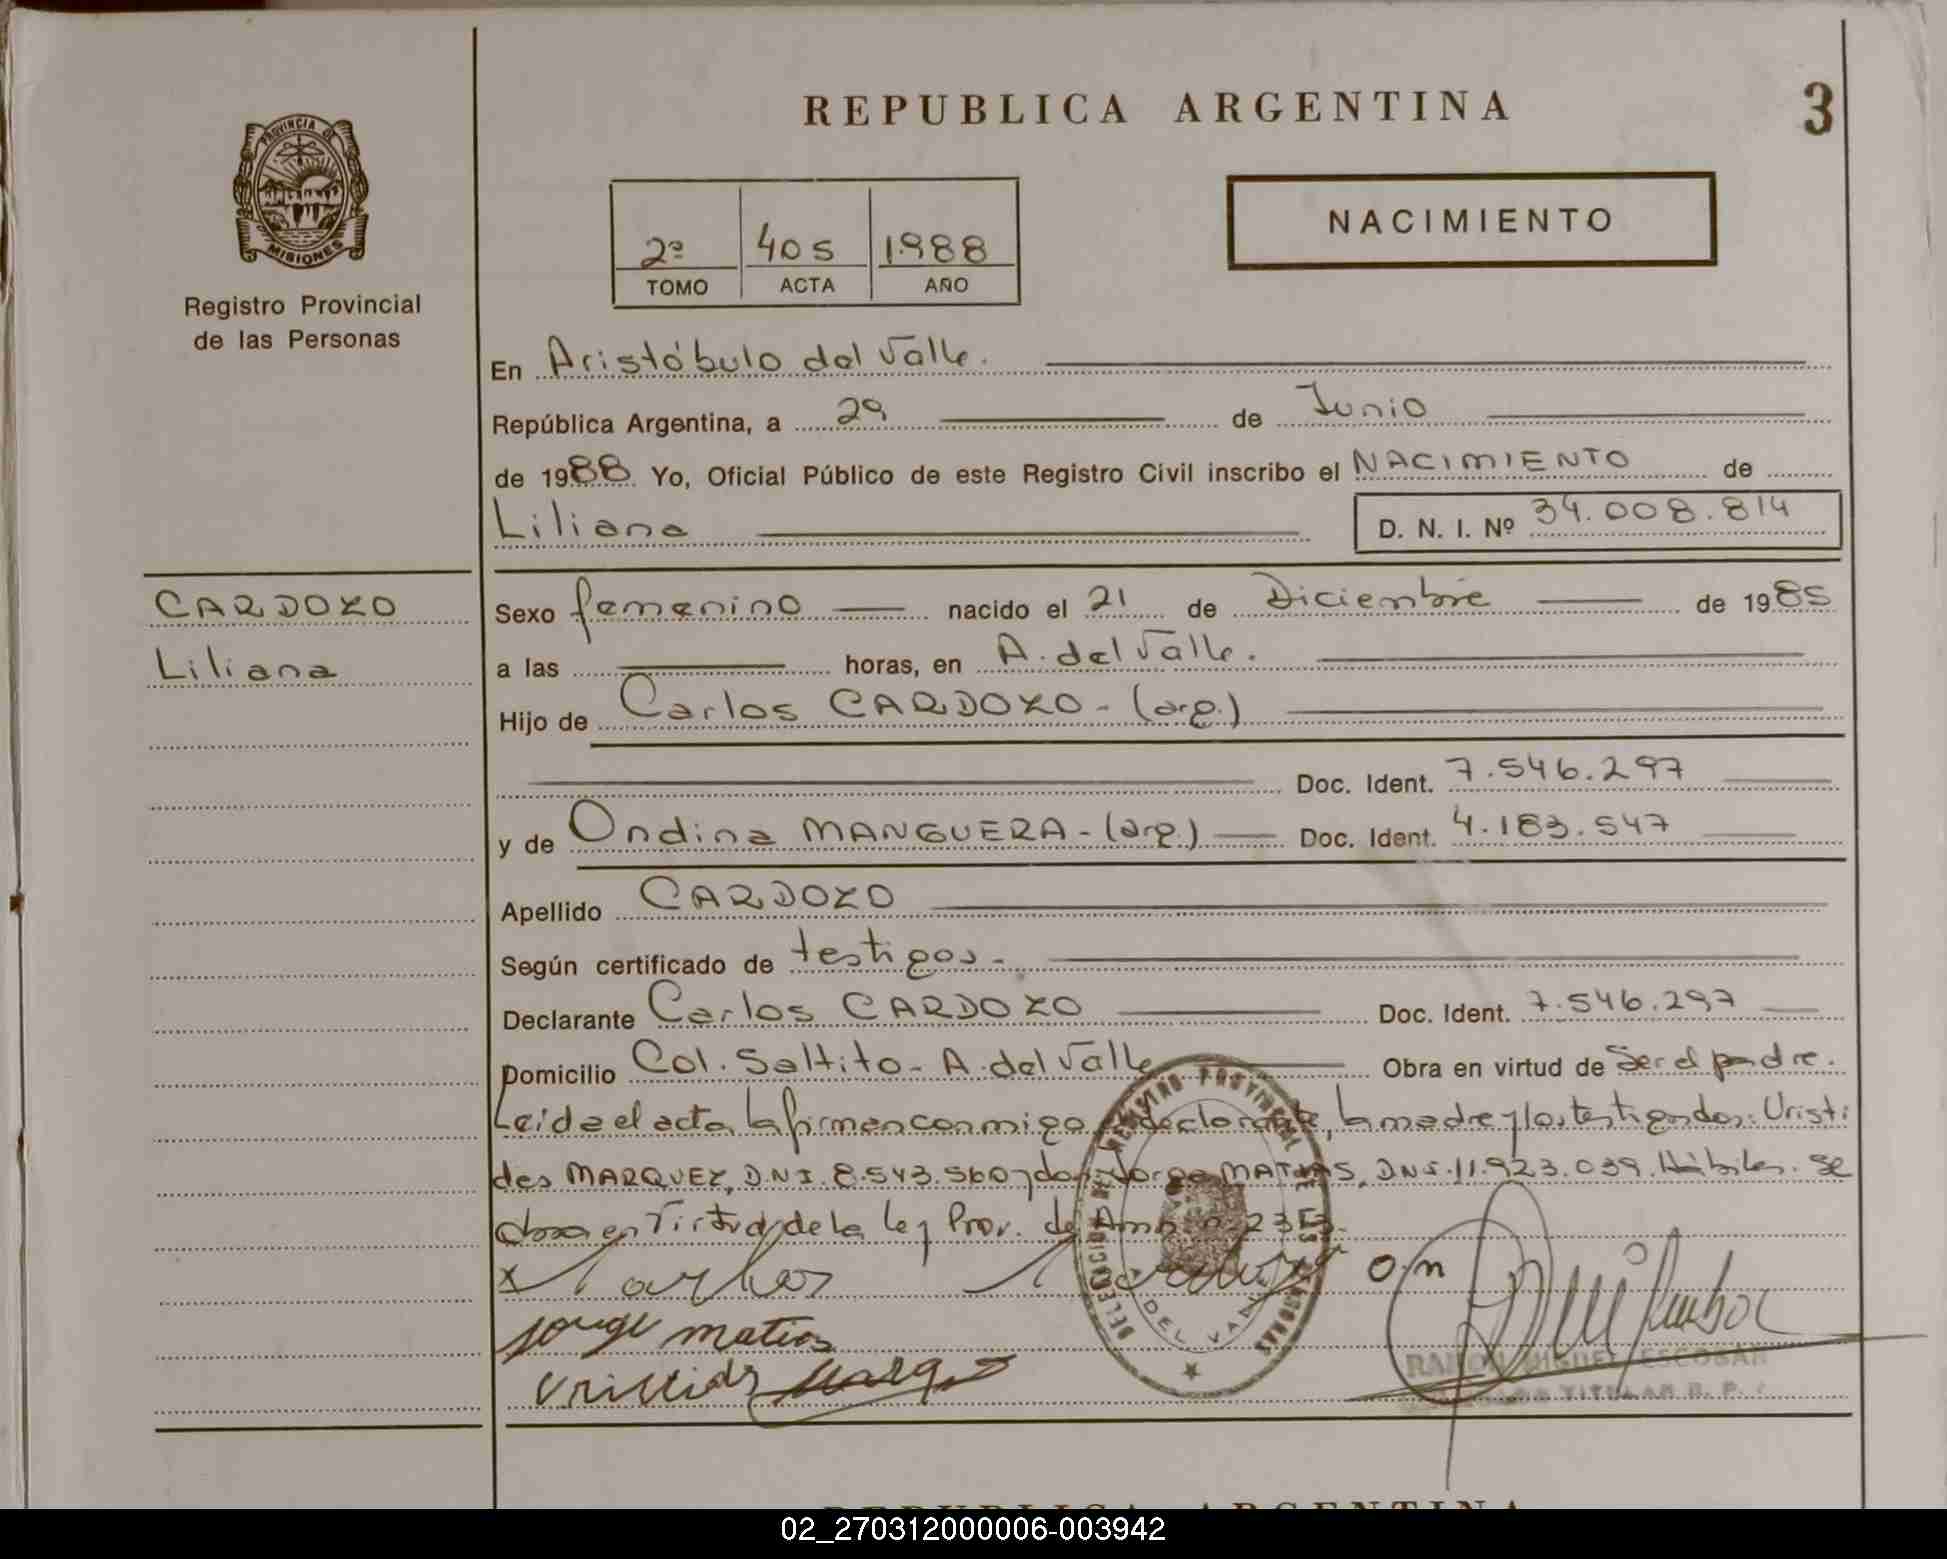 REPUBLICA ARGENTINA
3
PROVINCIA DE
MISIONES
Registro Provincial
de las Personas
NACIMIENTO
2º 405 1988
TOMO ACTA AÑO
En Aristóbulo del Valle.
República Argentina, a 29 de Junio
de 1988 Yo, Oficial Público de este Registro Civil inscribo el NACIMIENTO de
Liliana D. N. I. Nº 34.008.814
CARDOZO
Liliana
Sexo femenino nacido el 21 de Diciembre de 1985
a las horas, en A. del Valle.
Hijo de Carlos CARDOZO - (arg.)
Doc. Ident. 7.546.297
y de Ondina MANGUERA - (arg.) Doc. Ident. 4.183.547
Apellido CARDOZO
Según certificado de testigos.
Declarante Carlos CARDOZO Doc. Ident. 7.546.297
Domicilio Col. Saltito - A. del Valle Obra en virtud de Ser el padre.
Leida el acta la firman conmigo declarante, la madre y los testigos dos: Uristi
des MARQUEZ, D.N.I. 8.543.560 y don Jorge MATIAS, D.N.I. 11.923.039. Hábiles. Se
obra en Virtud de la ley Prov. de
x Carlos Cardozo
Jorge matias
RAMON MIGUEL ESCOBAR
TITULAR R. P.
DEL VALLE
REPUBLICA ARGENTINA
02_270312000006-003942